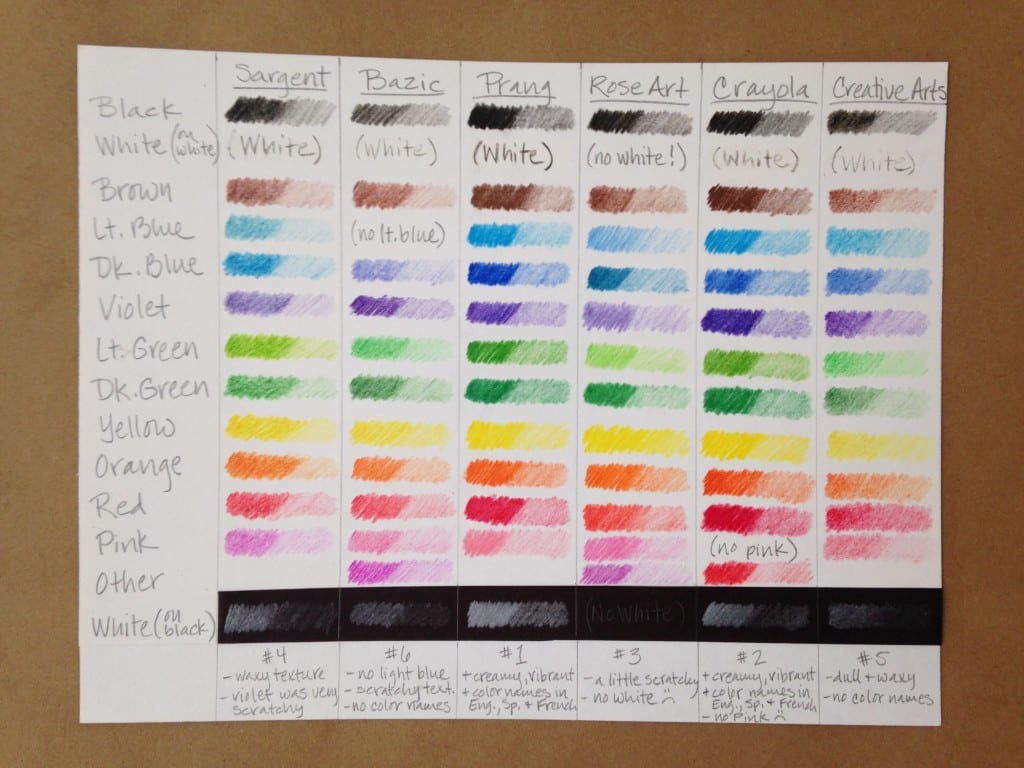 Sargent Bazic Prang Rose Art Crayola Creative Arts
Black
White (on white) (White) (White) (White) (no white!) (White) (White)
Brown
Lt. Blue (no lt. blue)
Dk. Blue
Violet
Lt. Green
Dk. Green
Yellow
Orange
Red
Pink (no pink)
Other
White (on black) (No White)
#4
- waxy texture
- violet was very
scratchy
#6
- no light blue
- scratchy text.
- no color names
#1
+ creamy, vibrant
+ color names in
Eng., Sp. & French
#3
- a little scratchy
- no white
#2
+ creamy, vibrant
+ color names in
Eng., Sp. & French
- no pink
#5
- dull + waxy
- no color names